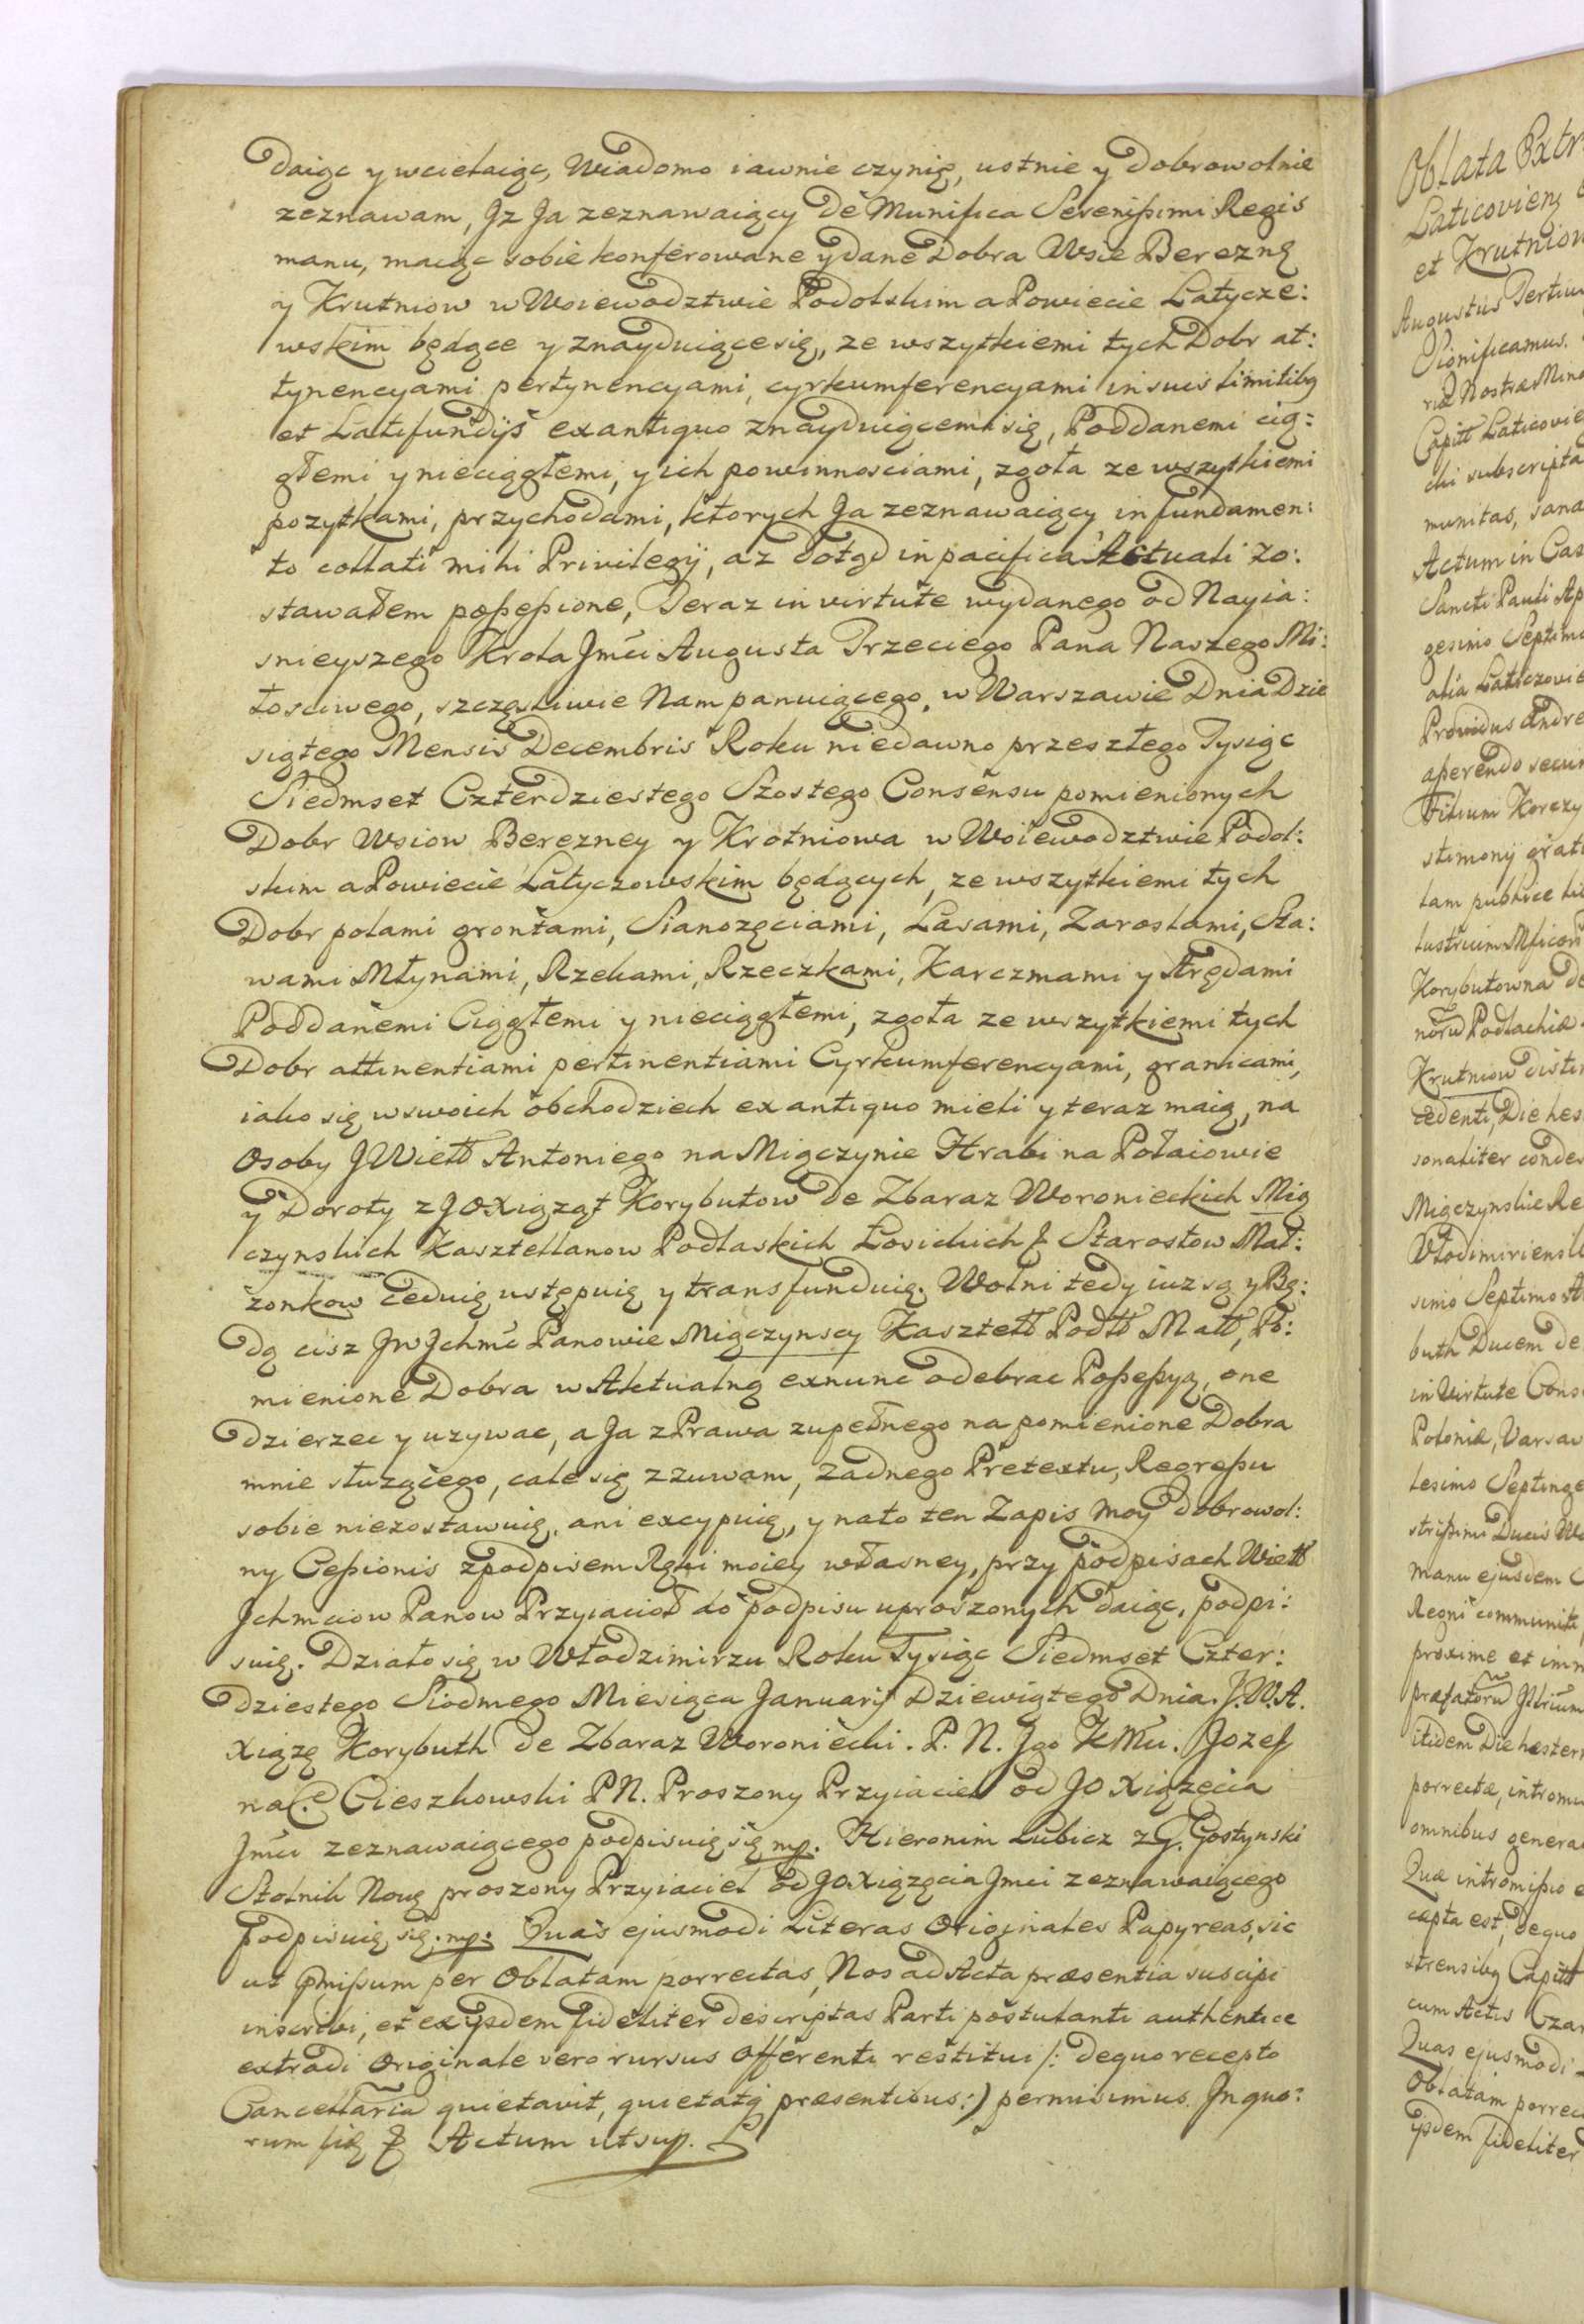 daiąc y wcielaiąc, Wiadomo iawnie czynię, ustnie y dobrowolnie
zeznawam, Jz Ja zeznawaiący de Munifica Serenißimi Regis
manu, maiąc sobie konferowane y dane Dobra Wsie Bereznę
y Krutniow w Woiewodztwie Podolskim a Powiecie Latycze:
wskim będące y znayduiące się, ze wszytkiemi tych Dobr at:
tynencyami pertynencyami, cyrkumferencyami in suis limitibq
et Latifundijs ex antiquo znayduiącemi się, Poddanemi cią:
głemi y nieciągłemi, y ich powinnosciami, zgoła ze wszytkiemi
pozytkami, przychodami, ktorych Ja zeznawaiący in fundamen:
to collati mihi Privilegij, az dotąd in pacifica Actuali zo:
stawałem poßeßione, Teraz in virtute wydanego od Nayia:
snieyszego Krola Jmći Augusta Trzeciego Pana Naszego Mi:
łosciwego, szczęsliwie Nam panuiącego, w Warszawie Dnia Dzie
siątego Mensis Decembris Roku niedawno przeszłego Tysiąc
Siedmset Czterdziestego Szostego Consensu pomienionych
Dobr Wsiow Berezney y Krotniowa w Woiewodztwie Podol:
skim a Powiecie Latyczowskim będących, ze wszytkiemi tych
Dobr polami grontami, Sianozęciami, Lasami, Zaroslami, Sta:
wami Młynami, Rzekami, Rzeczkami, Karczmami y Arędami
Poddanemi Ciągłemi y nieciągłemi, zgoła ze wszytkiemi tych
Dobr attinentiami pertinentiami Cyrkumferencyami, granicami,
iako się w swoich obchodziech ex antiquo mieli y teraz maią, na
Osoby JWielł Antoniego na Miączynie Hrabi na Połaiowie
y Doroty z JO Xiąząt Korybutow de Zbaraz Woronieckich Mią
czynskich Kasztellanow Podlaskich Łosickich & Starostow Mał:
zonkow Ceduię ustępuię y transfunduię. Wolni tedy iuz są y Bę:
dą cisz JW Jchmć Panowie Miączynscy Kasztell Podll Mall, Po:
mienione Dobra w Aktualną exnunc odebrac Poßeßyą, one
dzierzec y uzywac, a Ja z Prawa zupełnego na pomienione Dobra
mnie słuzącego, cale się zzuwam, Zadnego Pretextu, Regreßu
sobie niezostawuię, ani excypuię, y na to ten Zapis moy dobrowol:
ny Ceßionis z podpisem Ręki moiey własney, przy podpisach Wiell
Jchmciow Panow Przyiacioł do podpisu uproszonych daiąc, podpi:
suię. Działo się w Włodzimirzu Roku Tysiąc Siedmset Czter:
dziestego Siodmego Miesiąca Januarij Dziewiątego Dnia. J.W.A.
Xiązę Korybuth de Zbaraz Woroniecki. P. N. Jgo KMci. Jozef
na C. Cieszkowski P N. Proszony Przyiaciel od JO Xiązęcia
Jmći zeznawaiącego podpisuię się mp. Hieronim Lubicz z G. Gostynski
Stolnik Nowę proszony Przyiaciel od JO Xiązęcia Jmci zeznawaiącego
podpisuię się. mp. Quas ejusmodi Literas Originales Papyreas, sic
ut pmißum per Oblatam porrectas, Nos ad Acta præsentia suscipi
inscribi, et ex ijsdem fideliter descriptas Parti postulanti authentice
extradi Originale vero rursus Offerenti restitui /: de quo recepto
Cancellariã quietavit, quietatq præsentibus:) permisimus. Jn quo:
rum fid & Actum ut sup.
Oblata Extr
Laticovien
et Krutniow
Augustus Tertiu
Significamus.
riæ Nostræ Mino
Capitł Laticovie
cki subscripta
munitas, sana
Actum in Cas
Sancti Pauli Ap
gesimo Septimo
alia Laticzovie
Providus Andre
aperendo secun
Filium Korczy
stimonij grati
tam publice
Korybutowna de
Podlachiæ
Krutniow disti
cedenti, Die hes
sonaliter conde
Miączynskie Re
Vlodimirien
simo Septimo A
buth Ducem de
in Virtute Cons
Poloniæ, Varsav
lesimo Septinge
strißimi Ducis Wo
manu ejusdem C
Regni communit
proxime et imm
præfatorũ Jllrium
itidem Die hestern
porrectæ, intromi
omnibus genera
Quæ intromißio e
capta est, de quo
strensibq Capitł
cum Actis Czar
Quas ejusmodi
Oblatam porrec
ijsdem fideliter